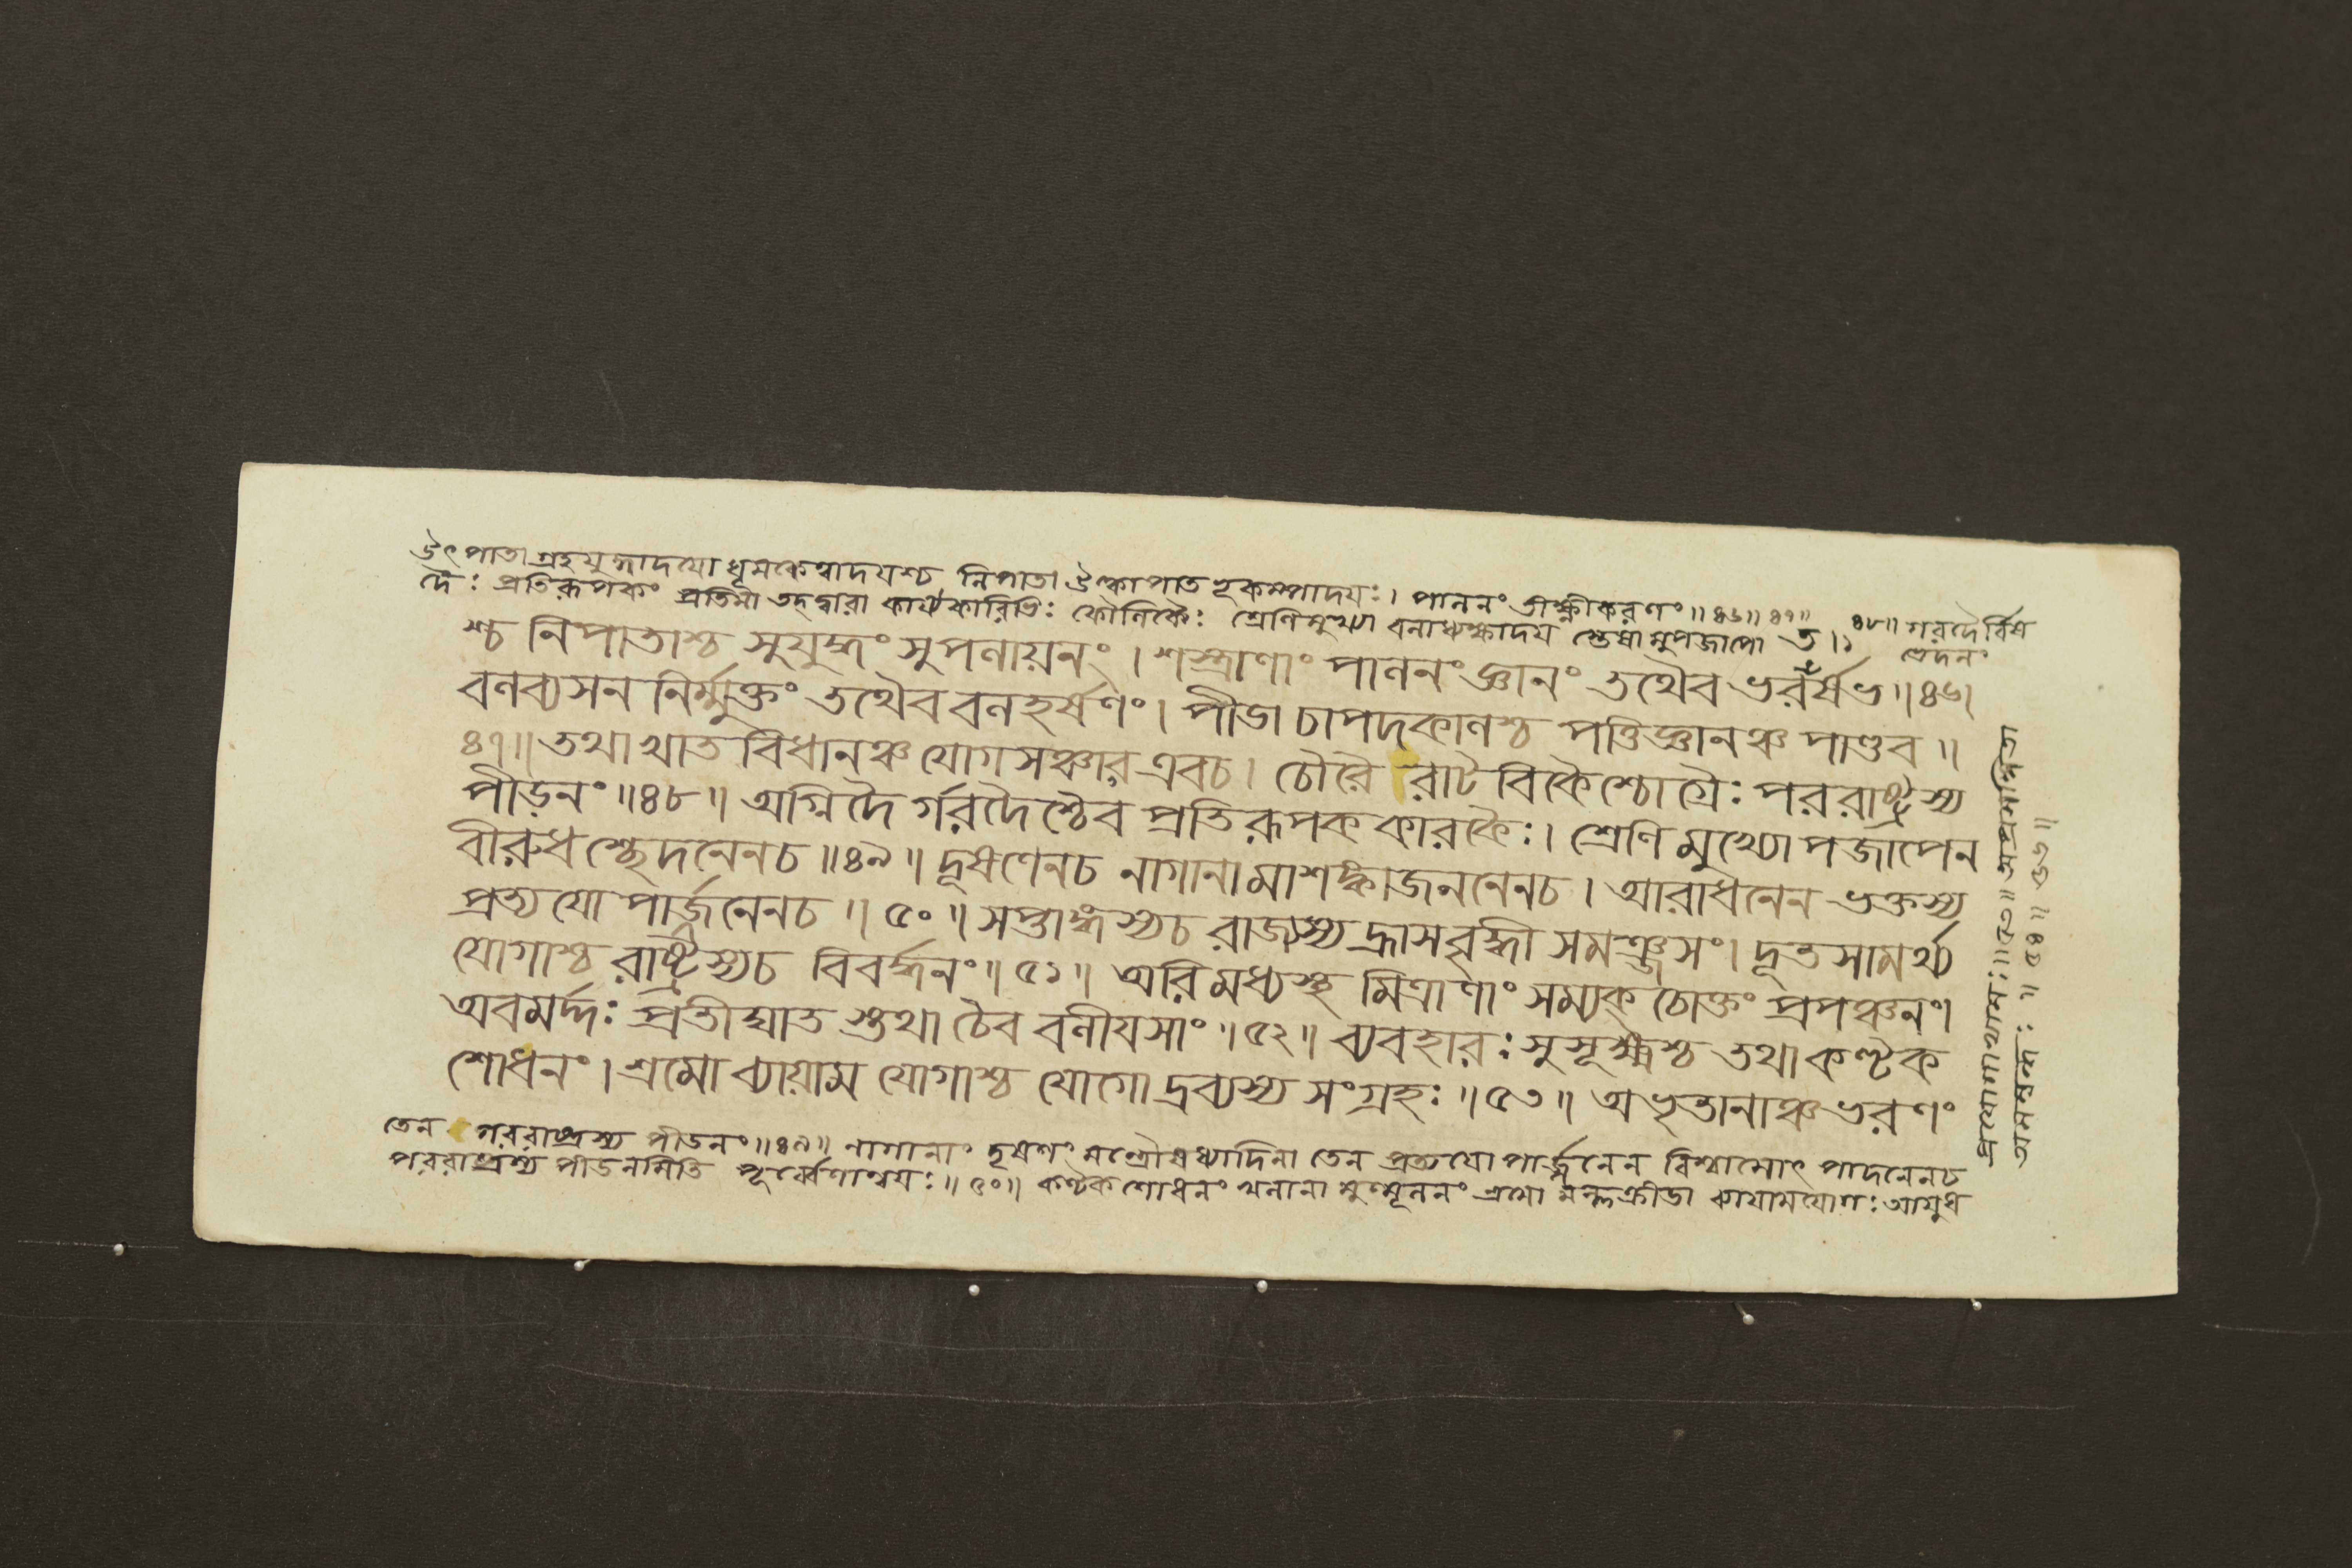 ঔৎপাতা গ্রহযুদ্ধাদযো ধূমকেত্বাদযশ্চ নিপাতা উল্কাপাত ভূকম্পাদযঃ। পাননং তীক্ষ্ণীকরণং ॥৪৬॥৪৭॥ ৪৮॥ গরদৈর্বিষ
দৈঃ প্রতিরূপকং প্রতিমা তদ্দ্বারা কার্য্যকারিভিঃ কৌণিকৈঃ শ্রেণিমুখ্যা বনাধ্যক্ষাদয স্তেষামুপজাপো ভেদনং
শ্চ নিপাতাশ্চ সুযুদ্ধং সুপলায়নং। শস্ত্রাণাং পাননং জ্ঞানং তথৈব ভরতর্ষভ॥৪৬।
বলব্যসন নির্ম্মুক্তং তথৈব বলহর্ষণং। পীডা চাপদকালশ্চ পত্তিজ্ঞানঞ্চ পাণ্ডব॥
৪৭॥ তথা খাত বিধানঞ্চ যোগসঞ্চার এবচ। চৌরৈ রাটবিকৈশ্চোগ্রৈঃ পররাষ্ট্রস্য
পীড়নং॥৪৮॥ অগ্নিদৈ র্গরদৈশ্চৈব প্রতিরূপক কারকৈঃ। শ্রেণি মুখ্যোপজাপেন
বীরুধশ্ছেদনেনচ॥৪৯॥ দূষণেনচ নাগানামাশঙ্কাজননেনচ। আরাধনেন ভক্তস্য
প্রত্যযোপার্জ্জনেনচ॥৫০॥ সপ্তাঙ্গস্যচ রাজ্যস্য হ্রাসবৃদ্ধী সমঞ্জসং। দূতসামর্থ্য
যোগাশ্চ রাষ্ট্রস্যচ বিবর্দ্ধনং॥৫১॥ অরি মধ্যস্থ মিত্রাণাং সম্যক্ চোক্তং প্রপঞ্চনং।
অবমর্দ্দঃ প্রতীঘাত স্তথা চৈব বলীযসাং॥৫২॥ ব্যবহারঃ সুসূক্ষ্মশ্চ তথা কণ্টক
শোধনং। শ্রমো ব্যায়াম যোগাশ্চ যোগো দ্রব্যস্য সংগ্রহঃ॥৫৩॥ অভৃতানাঞ্চ ভরণং
তেন পররাষ্ট্রস্য পীডনং॥৪৯॥ নাগানাং দূষণং মন্ত্রৌষধ্যাদিনা তেন প্রত্যযোপার্জ্জনেন বিশ্বাসোৎপাদনেনচ
পররাষ্ট্রস্য পীডনমিতি পূর্ব্বেণান্বযঃ॥৫০॥ কণ্টকশোধনং খলানামুন্মূলনং শ্রমো মল্লক্রীডা ব্যাযামযোগঃ আযুধ
প্রযোগাভ্যাসঃ॥৫৩॥
॥৫৪॥